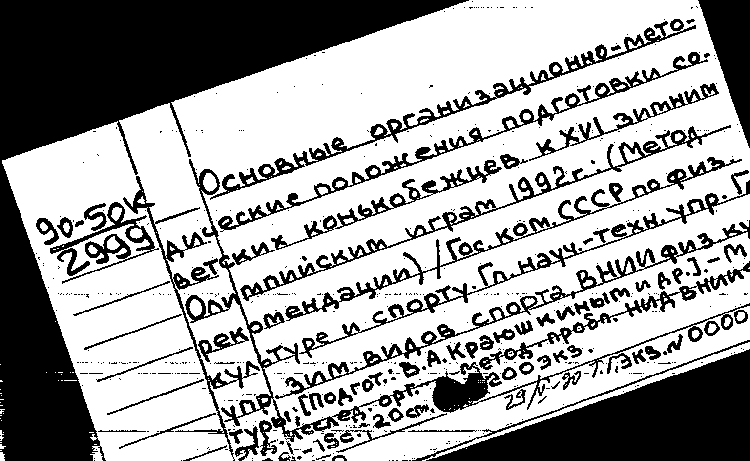 90-50К
2999
Основные организационно-мето-
дические положения подготовки со-
ветских конькобежцев к XVI зимним
Олимпийским играм 1992г.: (Метод.
рекомендации) / Гос. ком. СССР по физ.
культуре и спорту. Гл. науч.-техн. упр. Гл.
упр. зим. видов спорта, ВНИИ физ. ку
туры; [Подгот.: В.А. Краюшкиным и др.]. - М
исслед. орг. метод. пробл. НИД ВНИИ
15с.; 20см. 200 экз.
29/V-90 т.г. экз. N 0000